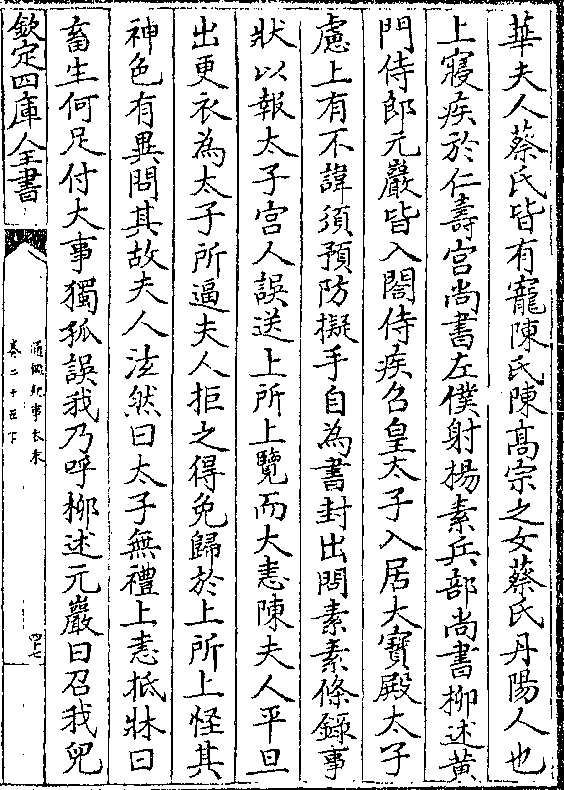 華夫人蔡氏皆有寵陳氏陳髙宗之女蔡氏丹陽人也
上寢疾於仁壽宫尚書左僕射楊素兵部尚書柳述黄
門侍郎元巖皆入閤侍疾召皇太子入居大寶殿太子
慮上有不諱須預防擬手自為書封出問素素條錄事
狀以報太子宫人誤送上所上覽而大恚陳夫人平旦
出更衣為太子所逼夫人拒之得免歸於上所上怪其
神色有異問其故夫人泫然曰太子無禮上恚抵牀曰
畜生何足付大事獨孤誤我乃呼柳述元巖曰召我兒
欽定四庫全書
通鑑紀事本末
卷二十五下
四七